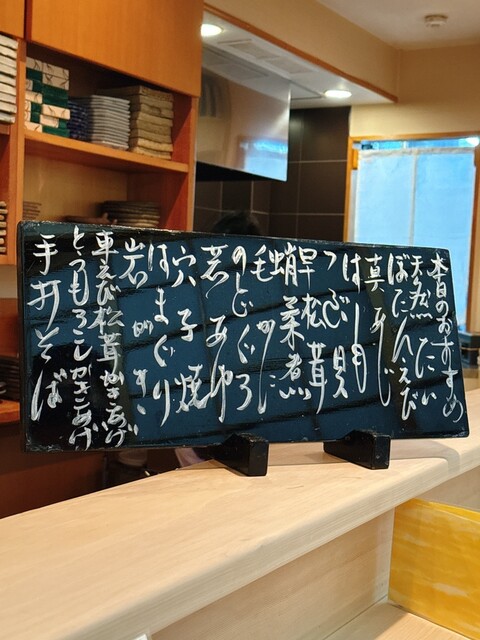 本日のおすすめ
天然たい
ぼたんえび
真あじ
はも
つぶ貝
早松茸
蛸柔煮
毛がに
のどぐろ
若あゆ
穴子焼
はまぐり
岩がき
車えび松茸かきあげ
とうもろこしかきあげ
手打そば